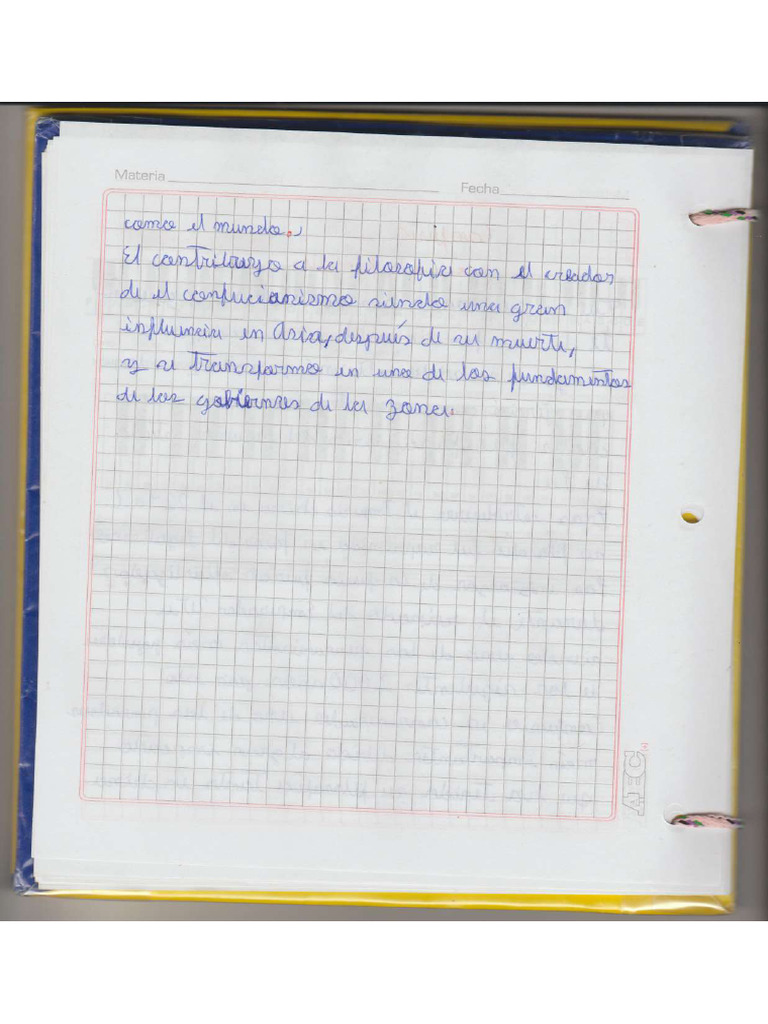 Materia Fecha
como el mundo.,
El contribuyo a la filozofia con el creador
de el confucianismo siendo una gran
influencia en Asia, después de su muerte,
y se transformo en uno de los fundamentos
de los gobiernos de la zona.
AEC